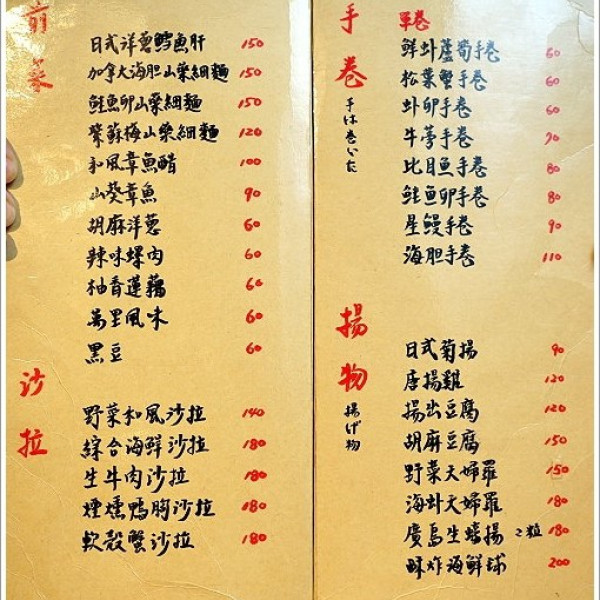 前菜
日式洋蔥鱈魚肝 150
加拿大海胆山藥細麵 150
鮭魚卵山藥細麵 150
紫蘇梅山藥細麵 120
和風章魚醋 100
山葵章魚 90
胡麻洋蔥 60
辣味螺肉 60
柚香蓮藕 60
萬里風味 60
黑豆 60
沙拉
野菜和風沙拉 140
綜合海鮮沙拉 180
生牛肉沙拉 180
煙燻鴨胸沙拉 180
軟殼蟹沙拉 180
手卷
手は巻いた
單卷
鮮虾蘆筍手卷 60
松葉蟹手卷 60
虾卵手卷 60
牛蒡手卷 70
比目魚手卷 80
鮭魚卵手卷 80
星鰻手卷 90
海胆手卷 110
揚物
揚げ物
日式菊揚 90
唐揚雞 120
揚出豆腐 120
胡麻豆腐 150
野菜天婦羅 150
海虾天婦羅 180
廣島生蠔揚 2粒 180
酥炸海鮮球 200